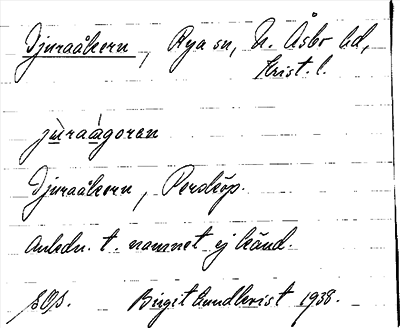 Djuraåkern, Rya sn, N. Åsbo hd,
Krist. l.
jùraágoren
Djuraåkern, Perstorp.
Anledn. t. namnet ej känd.
Birgit Lundkvist 1938.